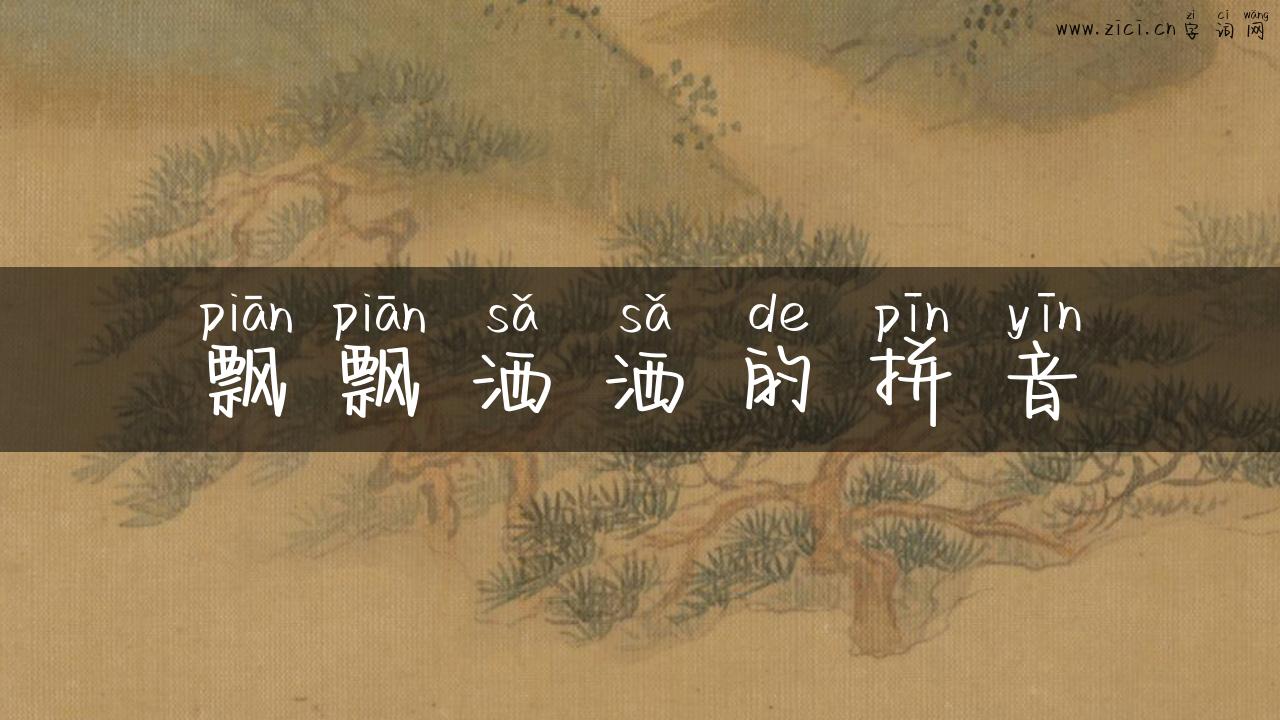 zì cí wǎng
www.zici.cn 字词网
piān piān sǎ sǎ de pīn yīn
飘飘洒洒的拼音